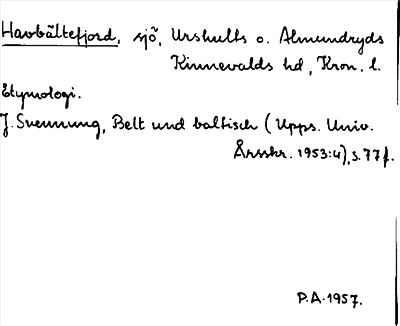 Havbältefjord, sjö, Urshults o. Almundryds
Kinnevalds hd, Kron. l.
Etymologi.
J. Svennung, Belt und baltisch (Upps. Univ.
Årsskr. 1953:4), s. 77 f.
P.A. 1957.